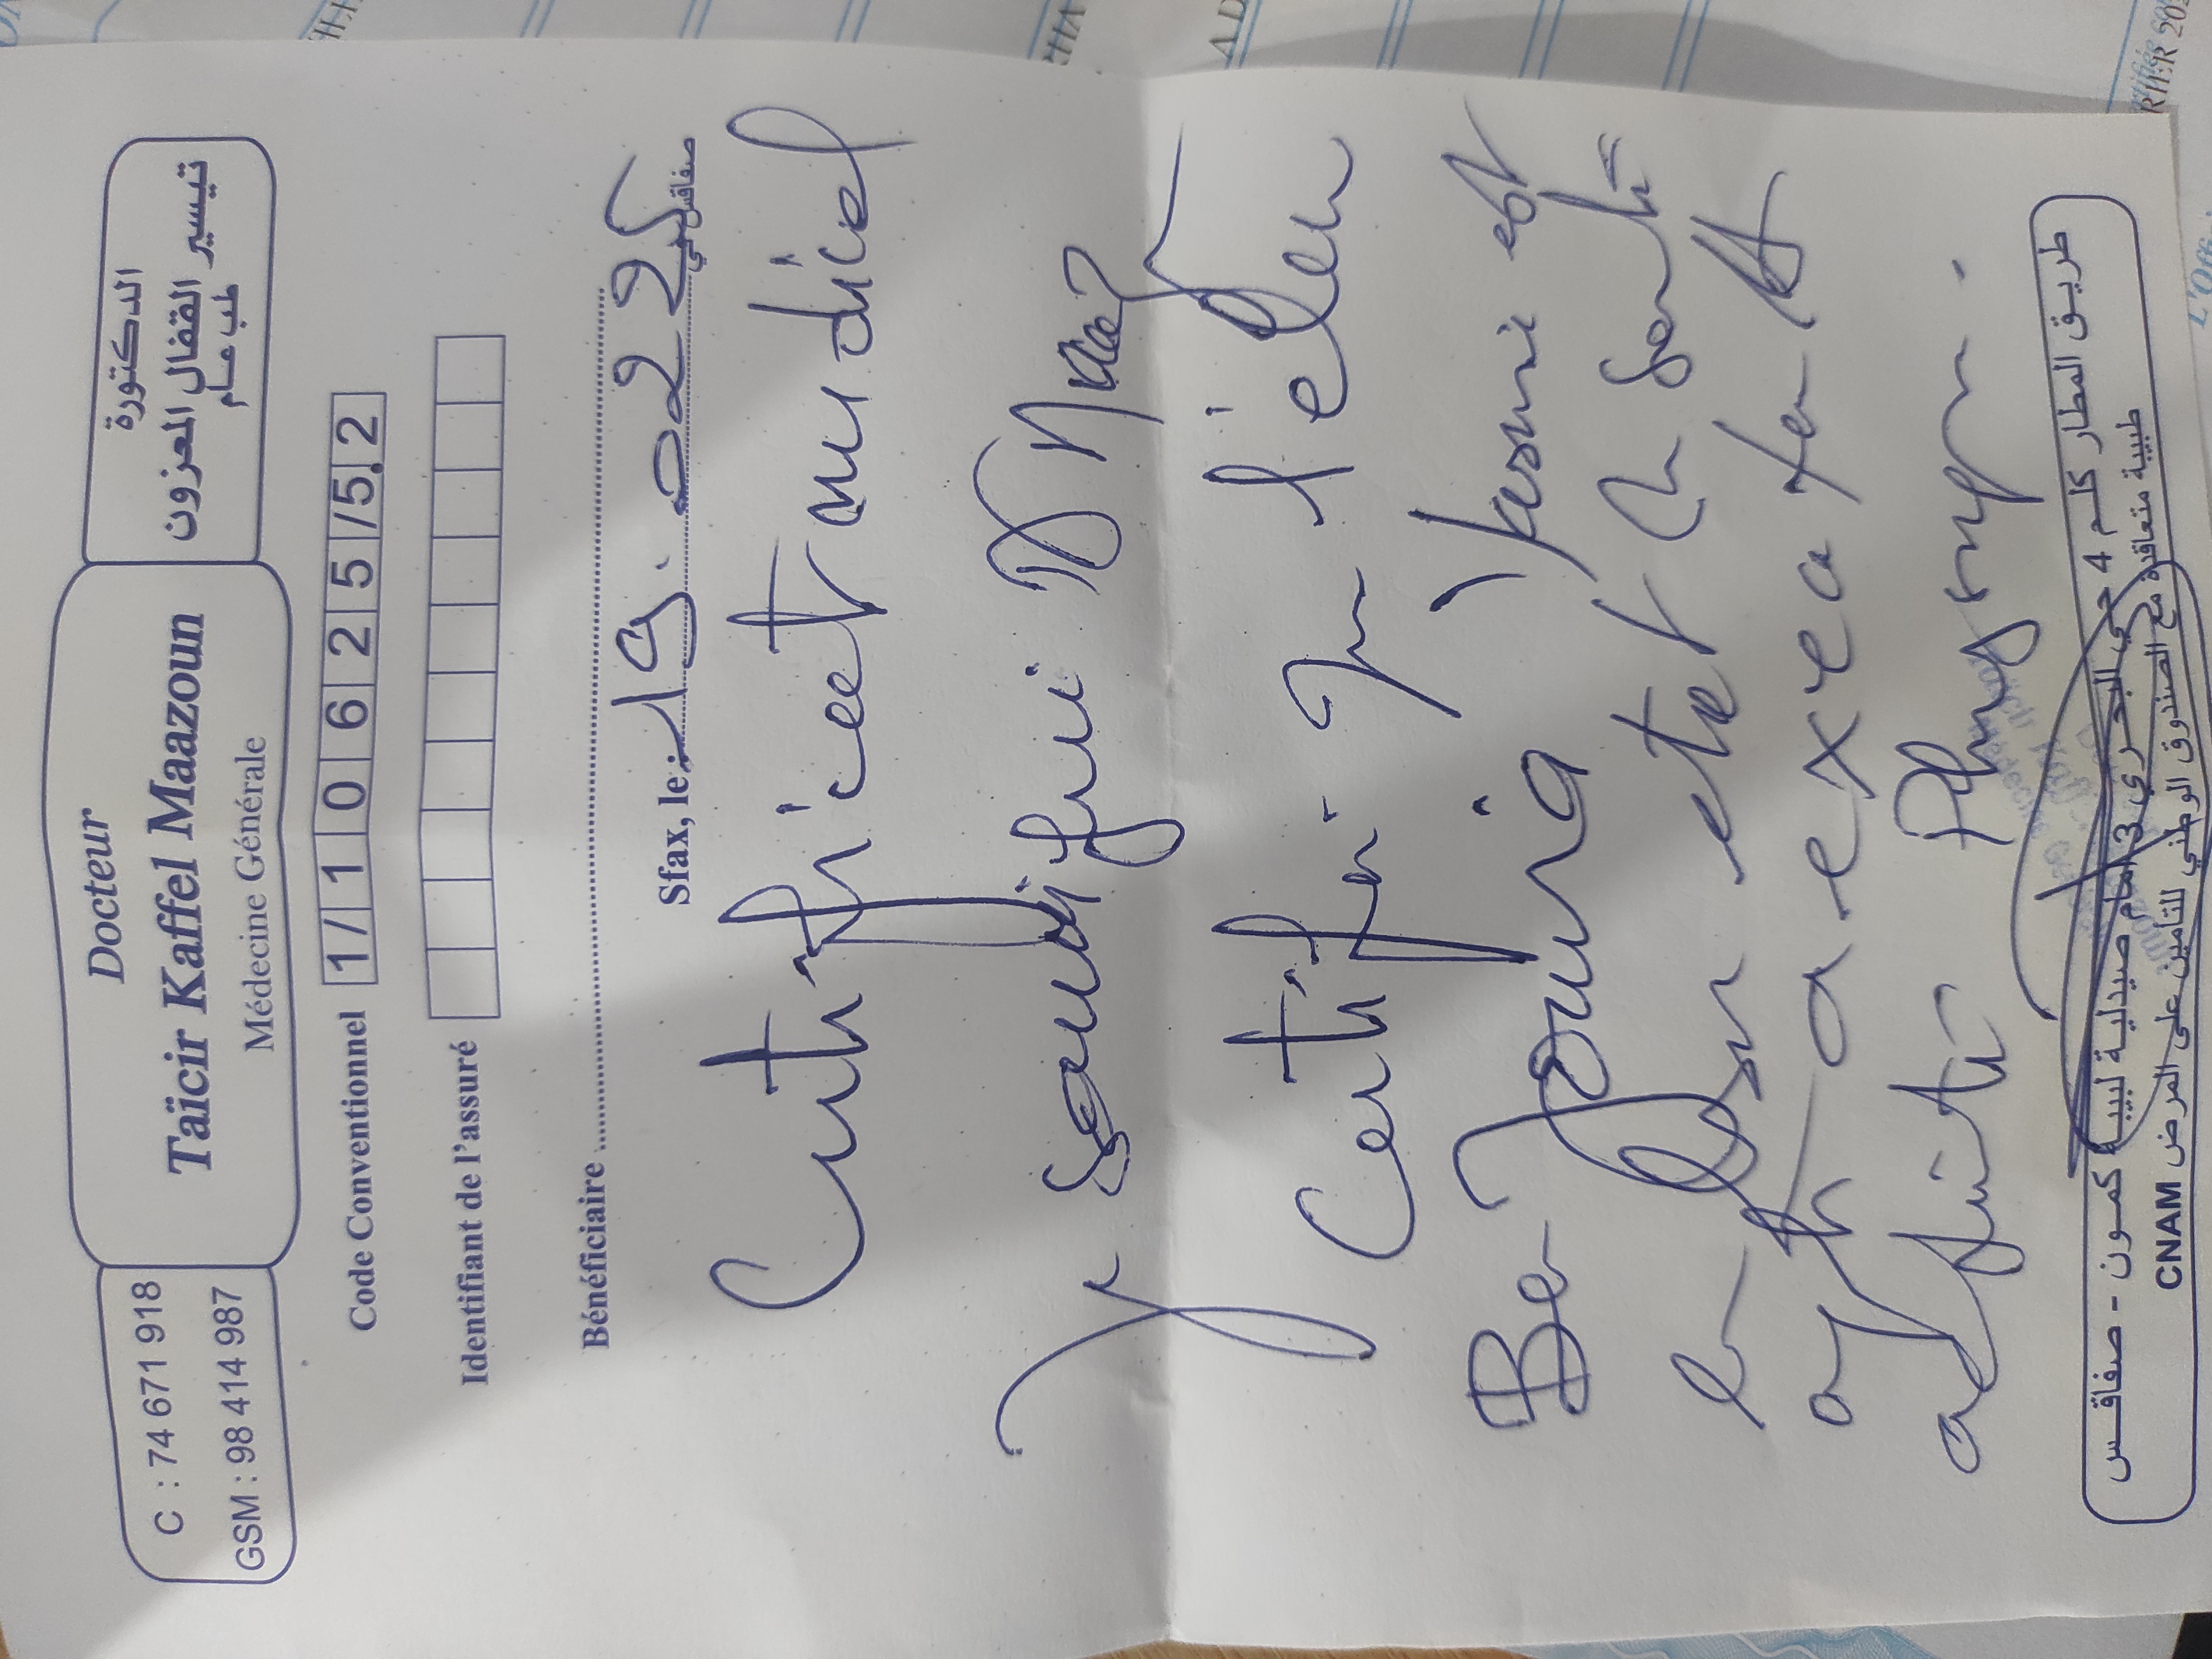 C : 74 671 918
GSM : 98 414 987
Docteur
Taïcir Kaffel Maazoun
Médecine Générale
الدكتورة
تيسير القفال المعزون
طب عام
Code Conventionnel 1/106255/52
Identifiant de l'assuré
Bénéficiaire
Sfax, le: 19. 
صفاقس في
Certificat medical
Je soussigné Dr
Certifie que l'élève
Ben Yasmine est
en bon etat de santé
apte a exercer
activité Physique.
طريق المطار كلم 4 حي البحري 3 أمام صيدلية لبيبة كمون - صفاقس
طبيبة متعاقدة مع الصندوق الوطني للتأمين على المرض CNAM